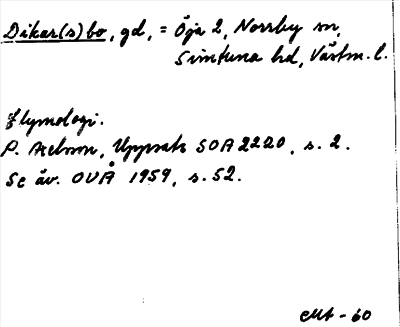 Dikar(s)bo, gd, = Öja 2, Norrby sn,
Simtuna hd, Västm. l.
Etymologi.
P. Axelsson, Uppsats SOA 2220, s. 2.
Se äv. OUÅ 1959, s. 52.
-60